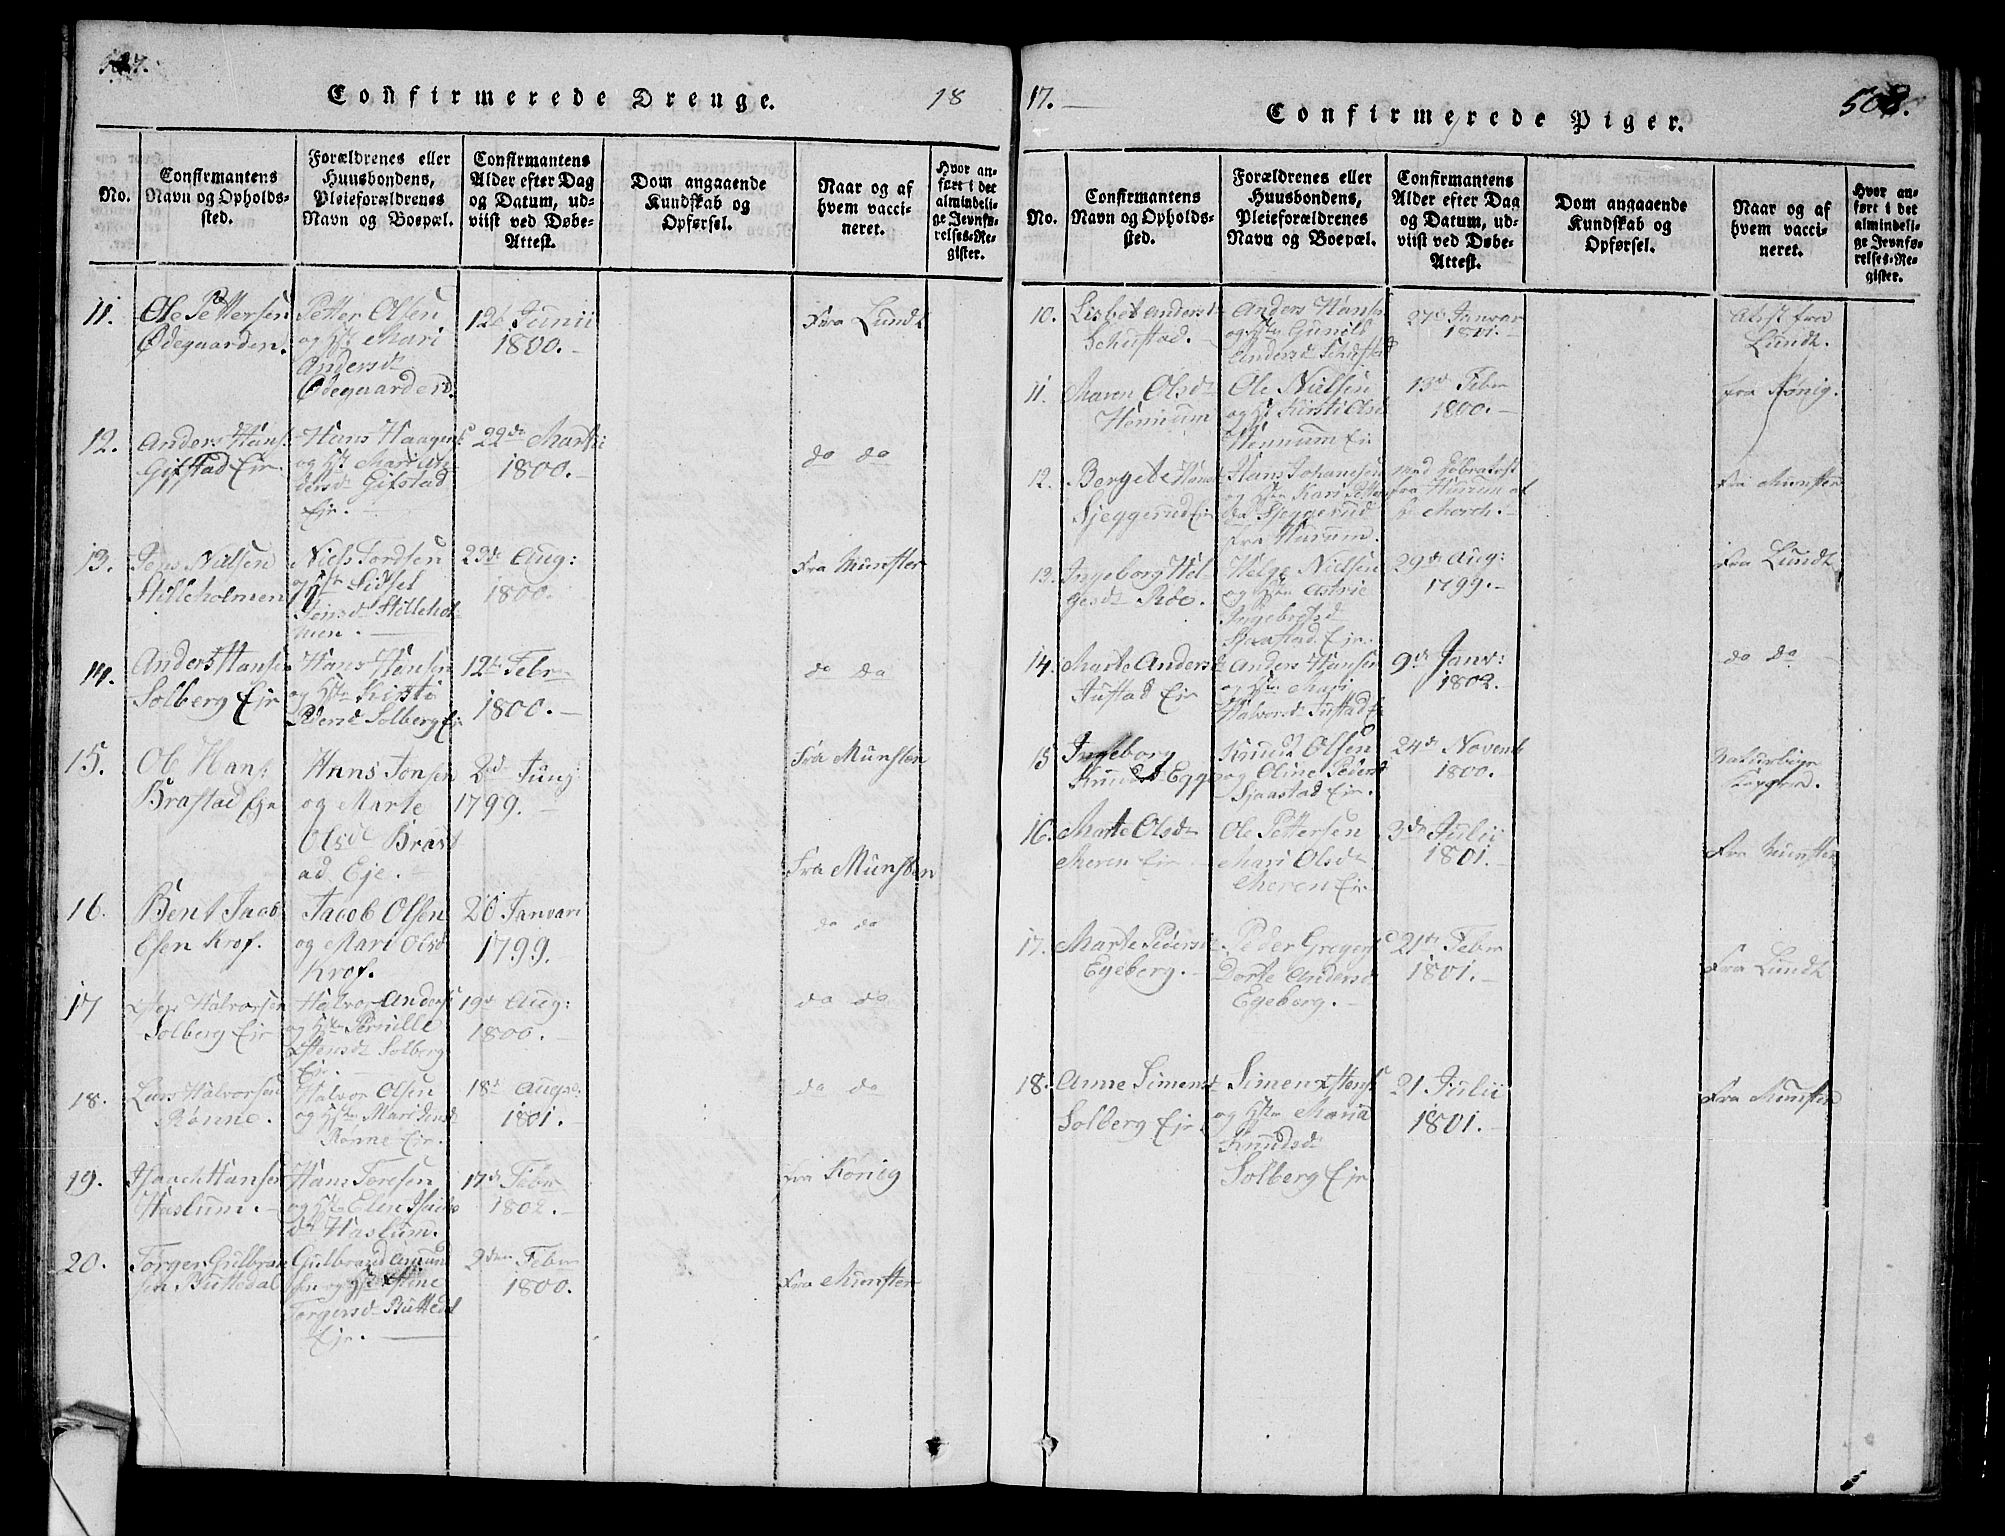 Confirmerede Drenge.
18
No.
Confirmantens
Navn og Opholds-
sted.
Forældrenes eller
Huusbondens,
Pleieforældrenes
Navn og Boepæl.
Confirmantens
Alder efter Dag
og Datum, ud-
viist ved Døbe-
Attest.
Dom angaaende
Kundskab og
Opførsel.
Naar og af
hvem vacci-
neret.
Hvor an-
ført i det
almindeli-
ge Jevnfø-
relses-Re-
gister.
11.
Ole Pettersen
Ødegaarden.
Petter Olsen
og Hst Mari
Andersd
Ødegaarden.
12 Junii
1800.
Fra Lundt
12.
Anders Hans.
Gifstad Eir.
Hans Haagens
og Hst Mari An-
dersd Gifstad
Ejr.
22de Marti:
1800.
do do
13.
Jens Nielsen
Stilleholmen
Niels Jordsen
og Hst Sidsel
Jensd Stillehol-
men.
23de Aug:
1800.
Fra Munster
14.
Anders Hansen
Solberg Ejr
Hans Hansen
og Hst Kirsti
Peders Solberg Ejr
12te Febr
1800.
do do
15.
Ole Hans:
Brastad Eje
Hans Jonsen
og Marte
Olsd Brast
ad Eje.
2d Aug:
1799.
Fra Munsten
Fra Munsten
16.
Bent Jacob
Esen Krof.
Jacob Olsen
og Mari Olsd
Krof.
20 Januari
1799.
do do
17
Halvorsen
Solberg Ejr
Halvor Anders
og Hst Pernille
Solberg
Ejr.
19d Aug:
1800.
do do
18.
Lars Halvorsen
Rønne.
Halvor Olsen
og Hst Mari
Rønne Ejr.
18d Aug:
1801.
do do
19.
Isaach Hansen
Haslum.
Hans Toresen
og Hst Elen Isachs
d Haslum.
17de Febr
1802.
fra Kønig
20.
Torger Gulbran
sen Buttedal
Gulbrand Amund
sen og Hst Stine
Torgersd Butted
Ejr.
2den Febr
1800.
Fra Munster
17.
Confirmerede Piger.
508.
No.
Confirmantens
Navn og Opholds-
sted.
Forældrenes eller
Huusbondens,
Pleieforældrenes
Navn og Boepæl.
Confirmantens
Alder efter Dag
og Datum, ud-
viist ved Døbe-
Attest.
Dom angaaende
Kundskab og
Opførsel.
Naar og af
hvem vacci-
neret.
Hvor an-
ført i det
almindeli-
ge Jevnfø-
relses-Re-
gister.
10.
Lisbet Andersd
Schustad.
Anders Hansen
og Hst Gunild
Andersd Schustad
27d Januar
1801.
Attst fra
Lundt.
11.
Maren Olsdr
Hennum
Ole Nielsen
og Hst Kirsti Olsd
Hennum Ejr
13de Febr
1800.
fra Kønig.
12.
Bergete Hans
Sjeggerud Ejr
Hans Johannesen
og Hst Kari Petter
Sjeggerud
fra Hurum.
med Døbeatest
fra Hurum af
Morch.
Fra Munster
13.
Ingeborg Hel-
gesdr Roe.
Helge Nielsen
og Hst Astrie
Ingebretsd
Braastad Ejr.
29de Aug:
1799.
fra Lundt
14.
Marte Anders
Justad Ejr
Anders Hansen
og Hst Mari
Halvorsd Justad Ejr
9de Janv:
1802.
do do
15
Ingeborg
Knuds Egge
Knud Olsen
og Eline Peders
Sjaastad Ejr.
24de Novemb
1800.
16.
Marte Olsdr
Meren Ejr
Ole Pettersen
Mari Olsdr
Meren Ejr
3de Julii
1801.
Fra Munster
17.
Marte Pedersd
Egeberg.
Peder Gregers
Dorte Anders
Egeberg.
21de Febr
1801.
Fra Lundt
18.
Anne Simensd
Solberg Ejr
Simen
og Hst Maria
Knudsd
Solberg Ejr
21 Julii
1801.
Fra Munsten